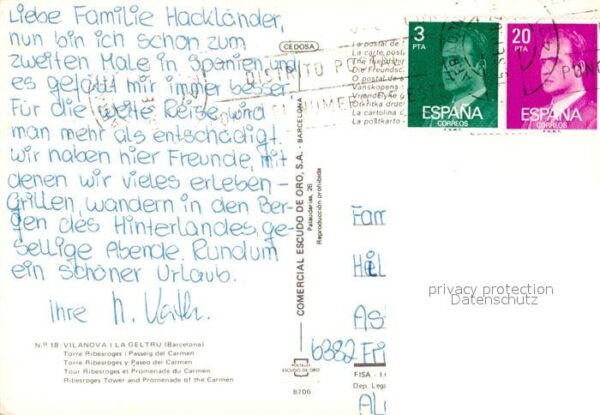 Liebe Familie Hackländer,
nun bin ich schon zum
zweiten Male in Spanien und
es gefällt mir immer besser.
Für die weite Reise wird
man mehr als entschädigt.
Wir haben hier Freunde, mit
denen wir vieles erleben –
Grillen, wandern in den Ber-
gen des Hinterlandes, ge-
sellige Abende. Rundum
ein schöner Urlaub.
Ihre
N.º 18 VILANOVA I LA GELTRU (Barcelona)
Torre Ribesroges i Passeig del Carmen
Torre Ribesroges y Paseo del Carmen
Tour Ribesroges et Promenade du Carmen
Ribesroges Tower and Promenade of the Carmen
CEDOSA
COMERCIAL ESCUDO DE ORO, S.A. - BARCELONA
Palaudarias, 26
Reproducción prohibida
POSTALES
ESCUDO DE ORO
8706
La postal de
La carte post
Die Freundsc
O postal de s
Vanskopens
La cartolina d
La postkarto
DISTRITO PO
NUME
3
PTA
ESPAÑA
CORREOS
20
PTA
ESPAÑA
CORREOS
Fam
Hil
As
6382 Fri
AL
privacy protection
Datenschutz
FISA - I.
Dep. Lega